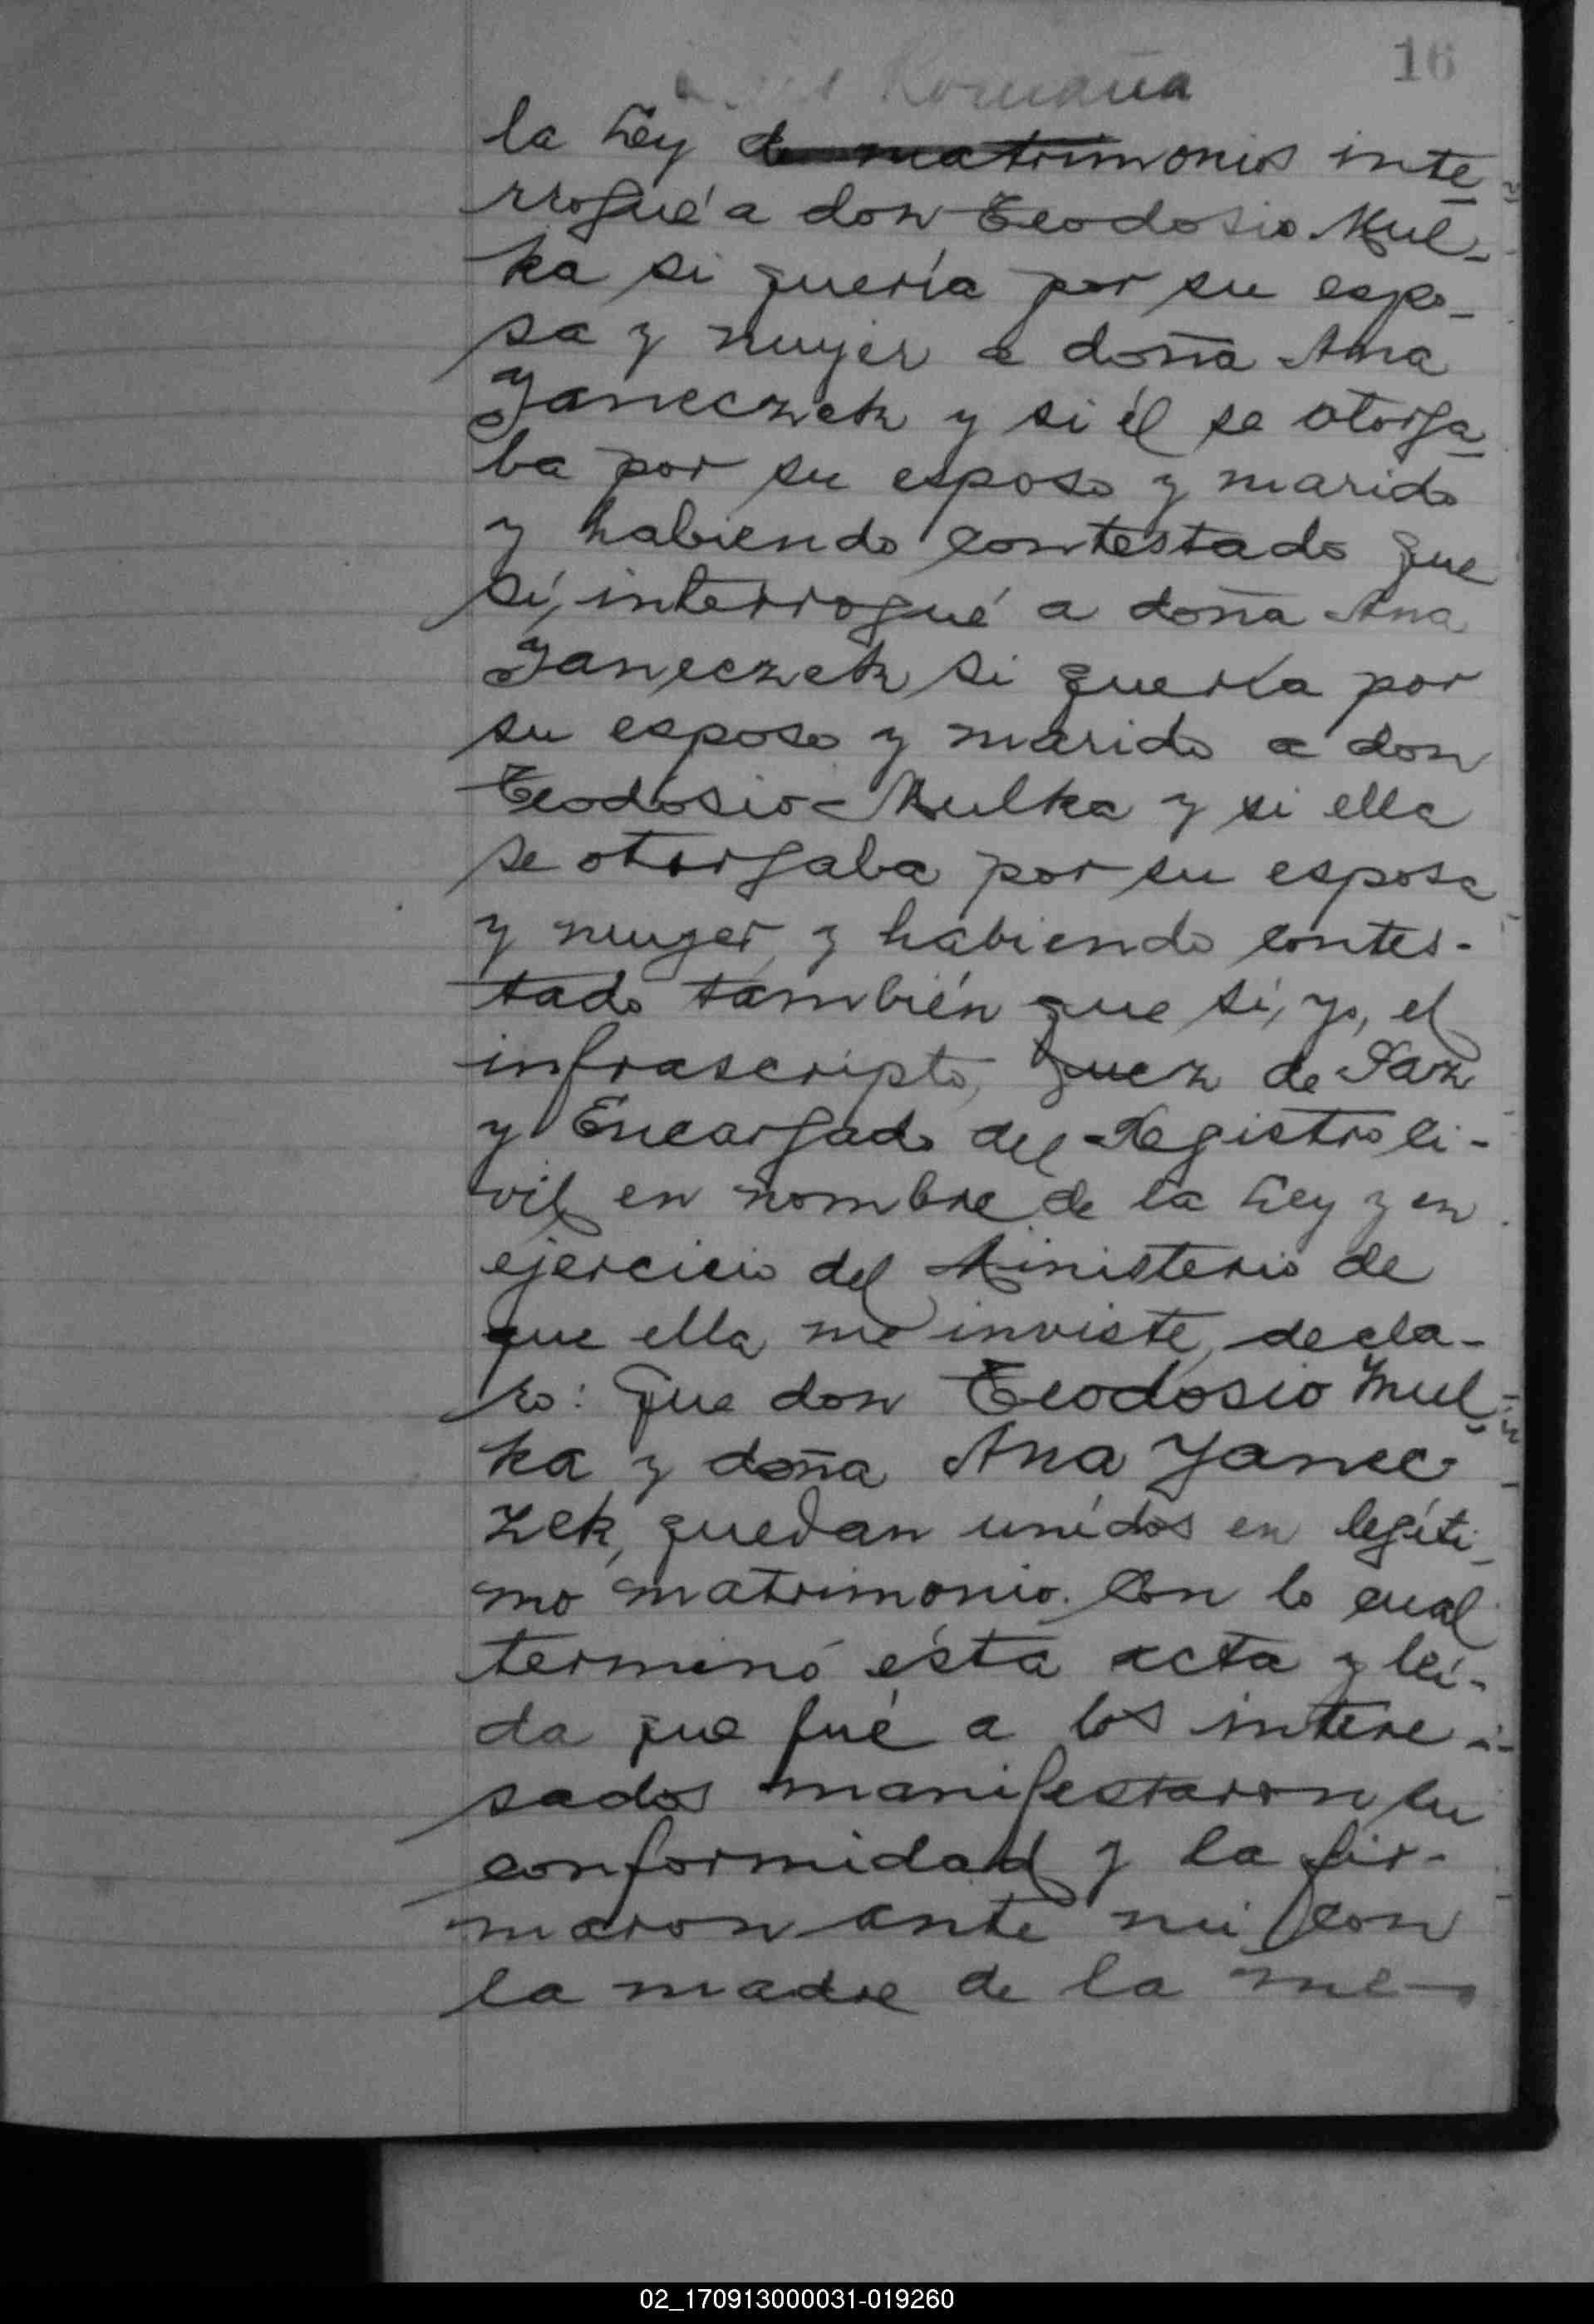 16
Romana
la Ley de matrimonios inte-
rrogué a don Teodosio Mul-
ka si quería por su espo-
sa y mujer a doña Ana
Janeczek y si él se otorga-
ba por su esposo y marido
y habiendo contestado que
sí, interrogué a doña Ana
Janeczek si quería por
su esposo y marido a don
Teodosio Mulka y si ella
se otorgaba por su esposa
y mujer, y habiendo contes-
tado también que sí, yo, el
infrascripto, Juez de Paz
y Encargado del Registro Ci-
vil en nombre de la Ley y en
ejercicio del Ministerio de
que ella me inviste, decla-
ro: Que don Teodosio Mul-
ka y doña Ana Janec-
zek, quedan unidos en legíti-
mo matrimonio. Con lo cual
terminó ésta acta y leí-
da que fué a los intere-
sados manifestaron su
conformidad y la fir-
maron ante mi con
la madre de la me-
02_170913000031-019260